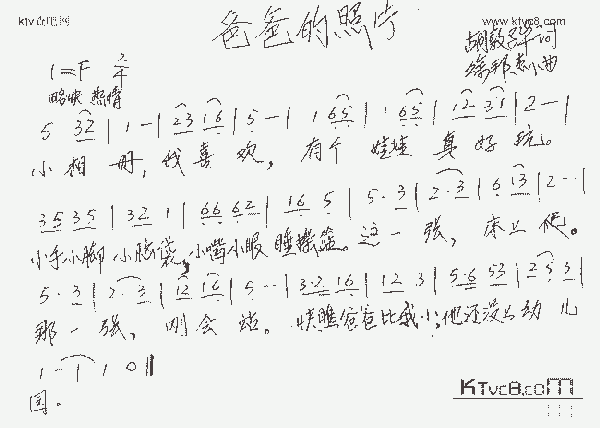 ktvc8吧网
www.ktvc8.com
爸爸的照片
1=F 2/4
胡敦骅词
徐邦杰曲
略快 热情
5 32 | 1 - | 23 16 | 5 - | 1 65 | 1 65 | 12 31 | 2 - |
小相册,我喜欢,有个娃娃真好玩。
35 35 | 32 1 | 66 62 | 16 5 | 5·3 | 2·3 | 6 13 | 2 - |
小手小脚小脑袋,小嘴小眼睡摇篮。这一张,床上爬。
5·3 | 2·3 | 12 16 | 5 - | 3·2 16 | 12 3 | 5·6 53 | 25 3 |
那一张,刚会站。快瞧爸爸比我小,他还没上幼儿
1 - | 1 0 ‖
园。
KTvc8.com